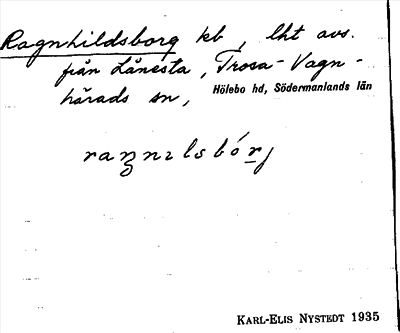 Ragnhildsborg kb, lht avs.
från Lånesta, Trosa-Vagn-
härads sn, Hölebo hd, Södermanlands län
raŋnılsbórj
KARL-ELIS NYSTEDT 1935